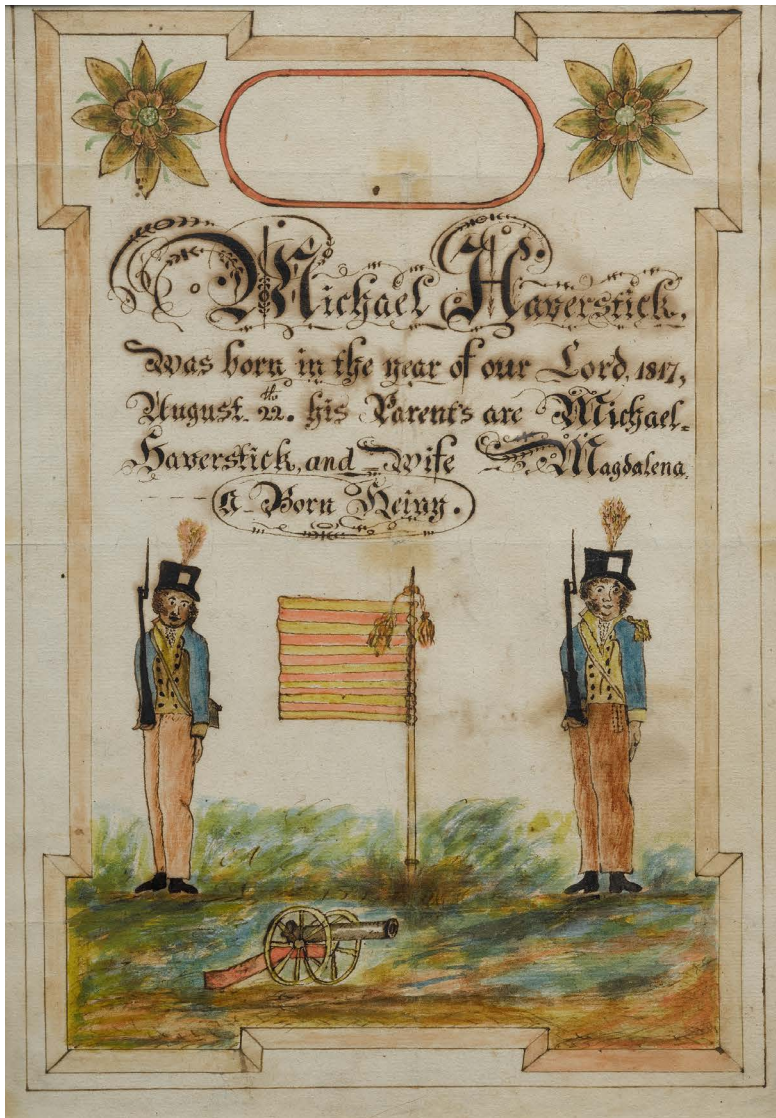 Michael Haverstick,
Was born in the year of our Lord, 1817,
August. 22th. his Parents are Michael=
Haverstick, and Wife Magdalena.
A Born Heiny.